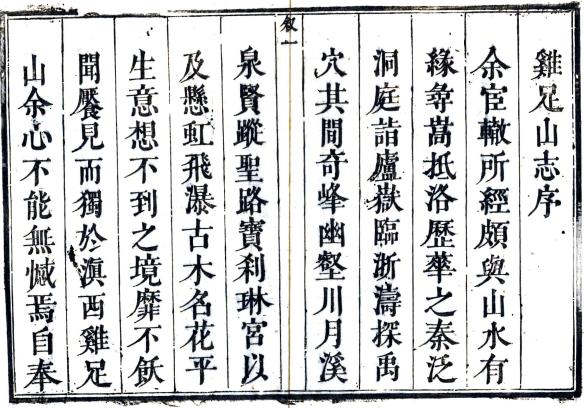 雞足山志序
余宦轍所經頗與山水有
緣尋嵩抵洛歷華之秦泛
洞庭詣廬嶽臨浙濤探禹
穴其間奇峰幽壑川月溪
叙一
泉賢蹤聖路寶刹琳宮以
及懸虹飛瀑古木名花平
生意想不到之境靡不飫
聞饜見而獨於滇西雞足
山余心不能無憾焉自奉